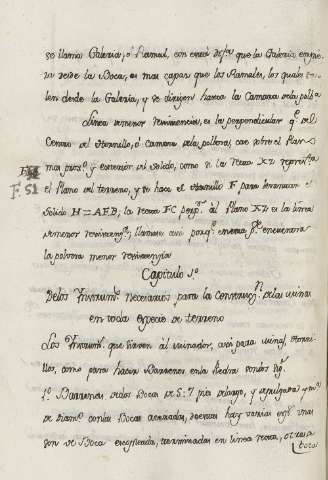 se llama Galeria, ó Ramal, con esta dif.ª que la Galeria empie-
za desde la Boca, es mas capaz que los Ramales, los quales sa-
len desde la Galeria, y se dirijen hacia la Camara de la polb.ª
Linea de menor resistencia, es la perpendicular q.e del
Centro del Hornillo, ó Camara de la polbora, cae sobre el Plan
mas prox.º y exterior del solido, como si la recta XZ repres.ta
F. 51
el Plano del terreno, y se hace el Hornillo F para
Solido H=AEB, la recta FC perp.r al Plano XZ es la linea
de menor resistencia; llamase asi porq.e en esta p.te encuentra
la polbora menor resistencia
Capitulo 1.º
De los Instrum.tos necesarios para la Construcz.n de las minas
en toda especie de terreno
Los Instrum.tos que sirven al minador, asi para Hornillos
como para hacer Barrenos en la Piedra son los sig.s
1.º Barrenas de dos Bocas de 5 á 7 pies de largo, y
de Diam.o con las Bocas aceradas, de estas hay varias
son de Boca, terminadas en linea recta, otras